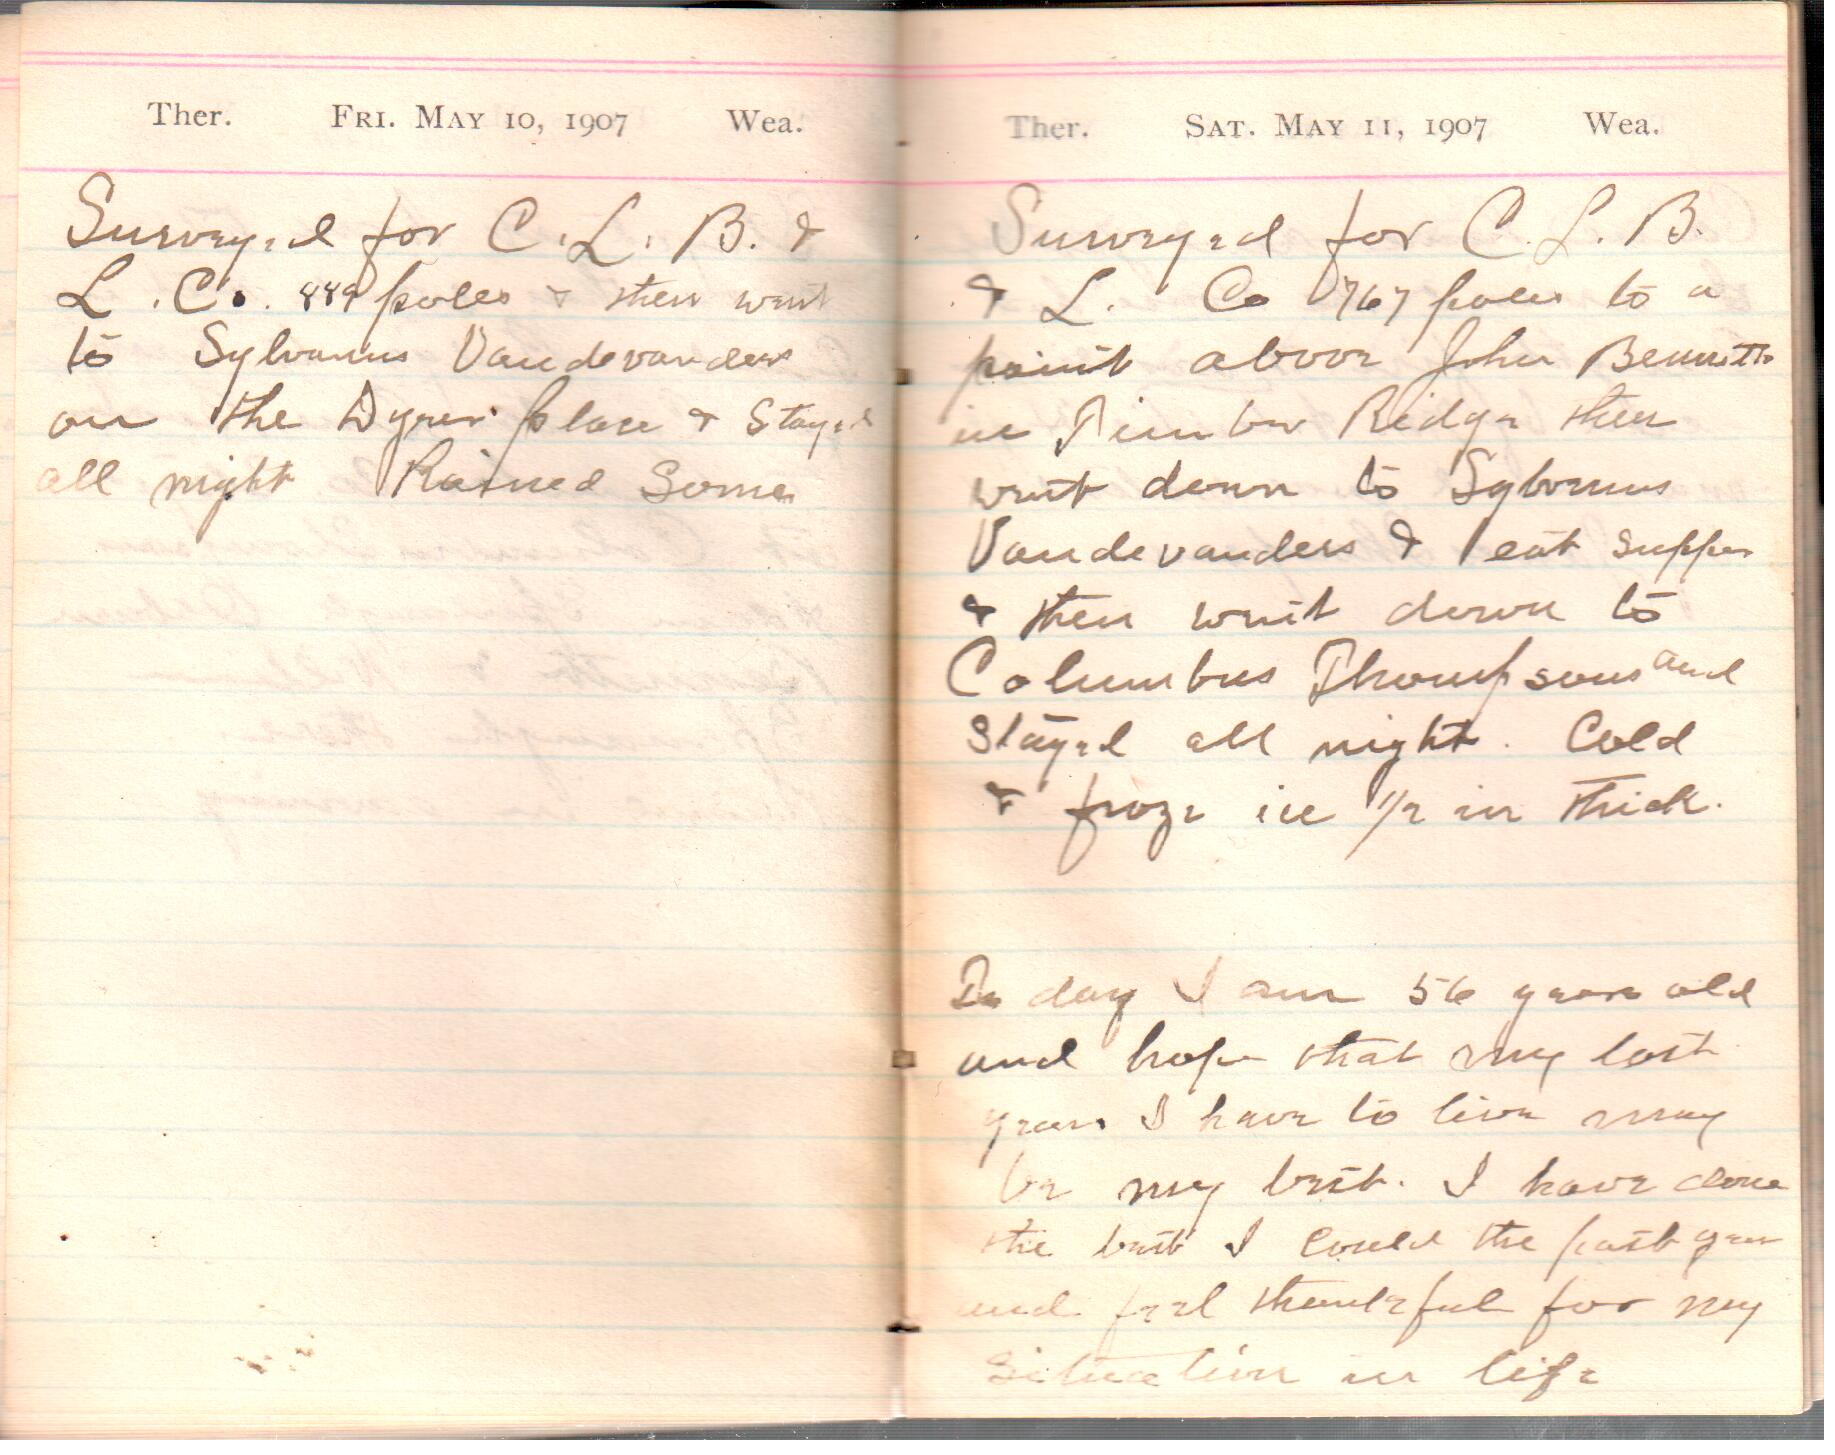 Ther. Fri. May 10, 1907 Wea.
Surveyed for C. L. B. &
L. Co. 889 poles & then went
to Sylvanus Vandevanders
on the Dyer place & Stayed
all night Rained Some
Ther. Sat. May 11, 1907 Wea.
Surveyed for C. L. B.
& L. Co 767 poles to a
point above John Bennetts
in Timber Ridge then
went down to Sylvanus
Vandevanders & eat supper
& then went down to
Columbus Thompsons and
stayed all night. Cold
& froze ice 1/2 in thick.
To day I am 56 years old
and hope that my last
years I have to live may
be my best. I have done
the best I could the past year
and feel thankful for my
Situation in life